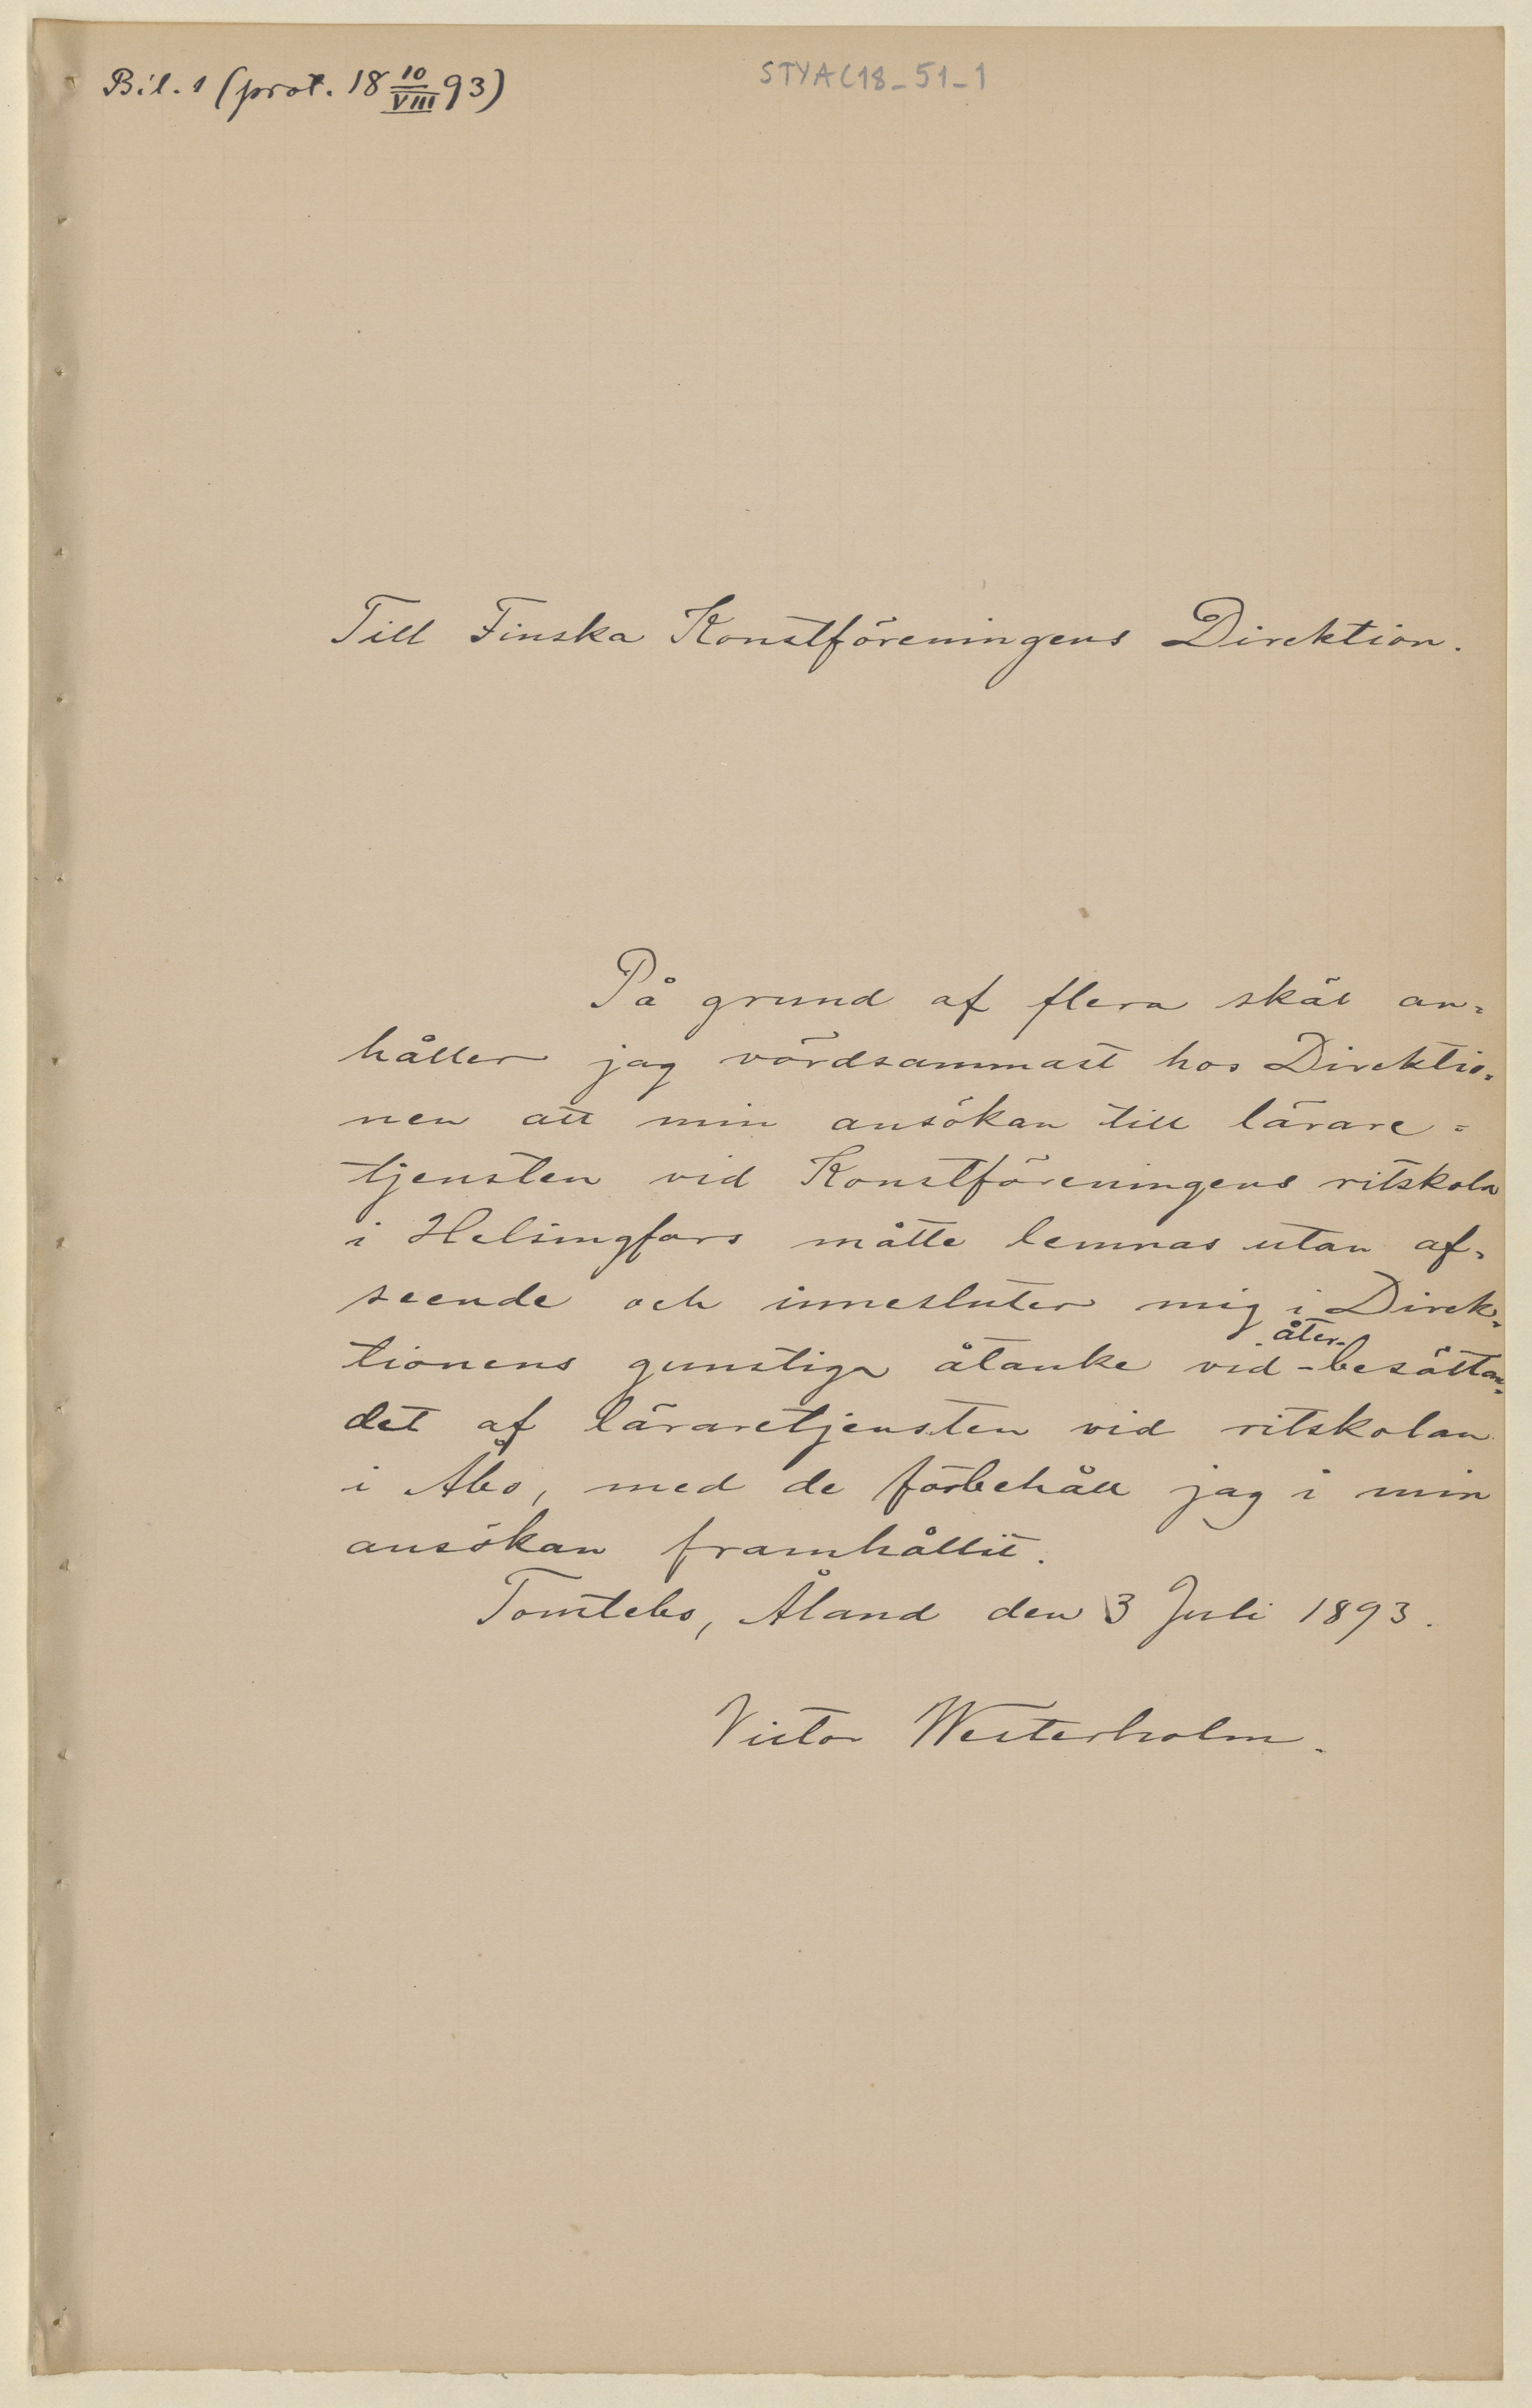 Bil. 1 (prot. 18 10/VIII 93)
STYA C18_51_1
Till Finska Konstföreningens Direktion.
På grund af flera skäl an=
håller jag vördsammast hos Direktio=
nen att min ansökan till lärare=
tjensten vid Konstföreningens ritskola
i Helsingfors måtte lemnas utan af=
seende och innesluter mig i Direk=
åter-
tionens gunstiga åtanke vid -besättan=
det af läraretjensten vid ritskolan
i Åbo, med de förbehåll jag i min
ansökan framhållit.
Tomtebo, Åland den 3 Juli 1893.
Victor Westerholm.